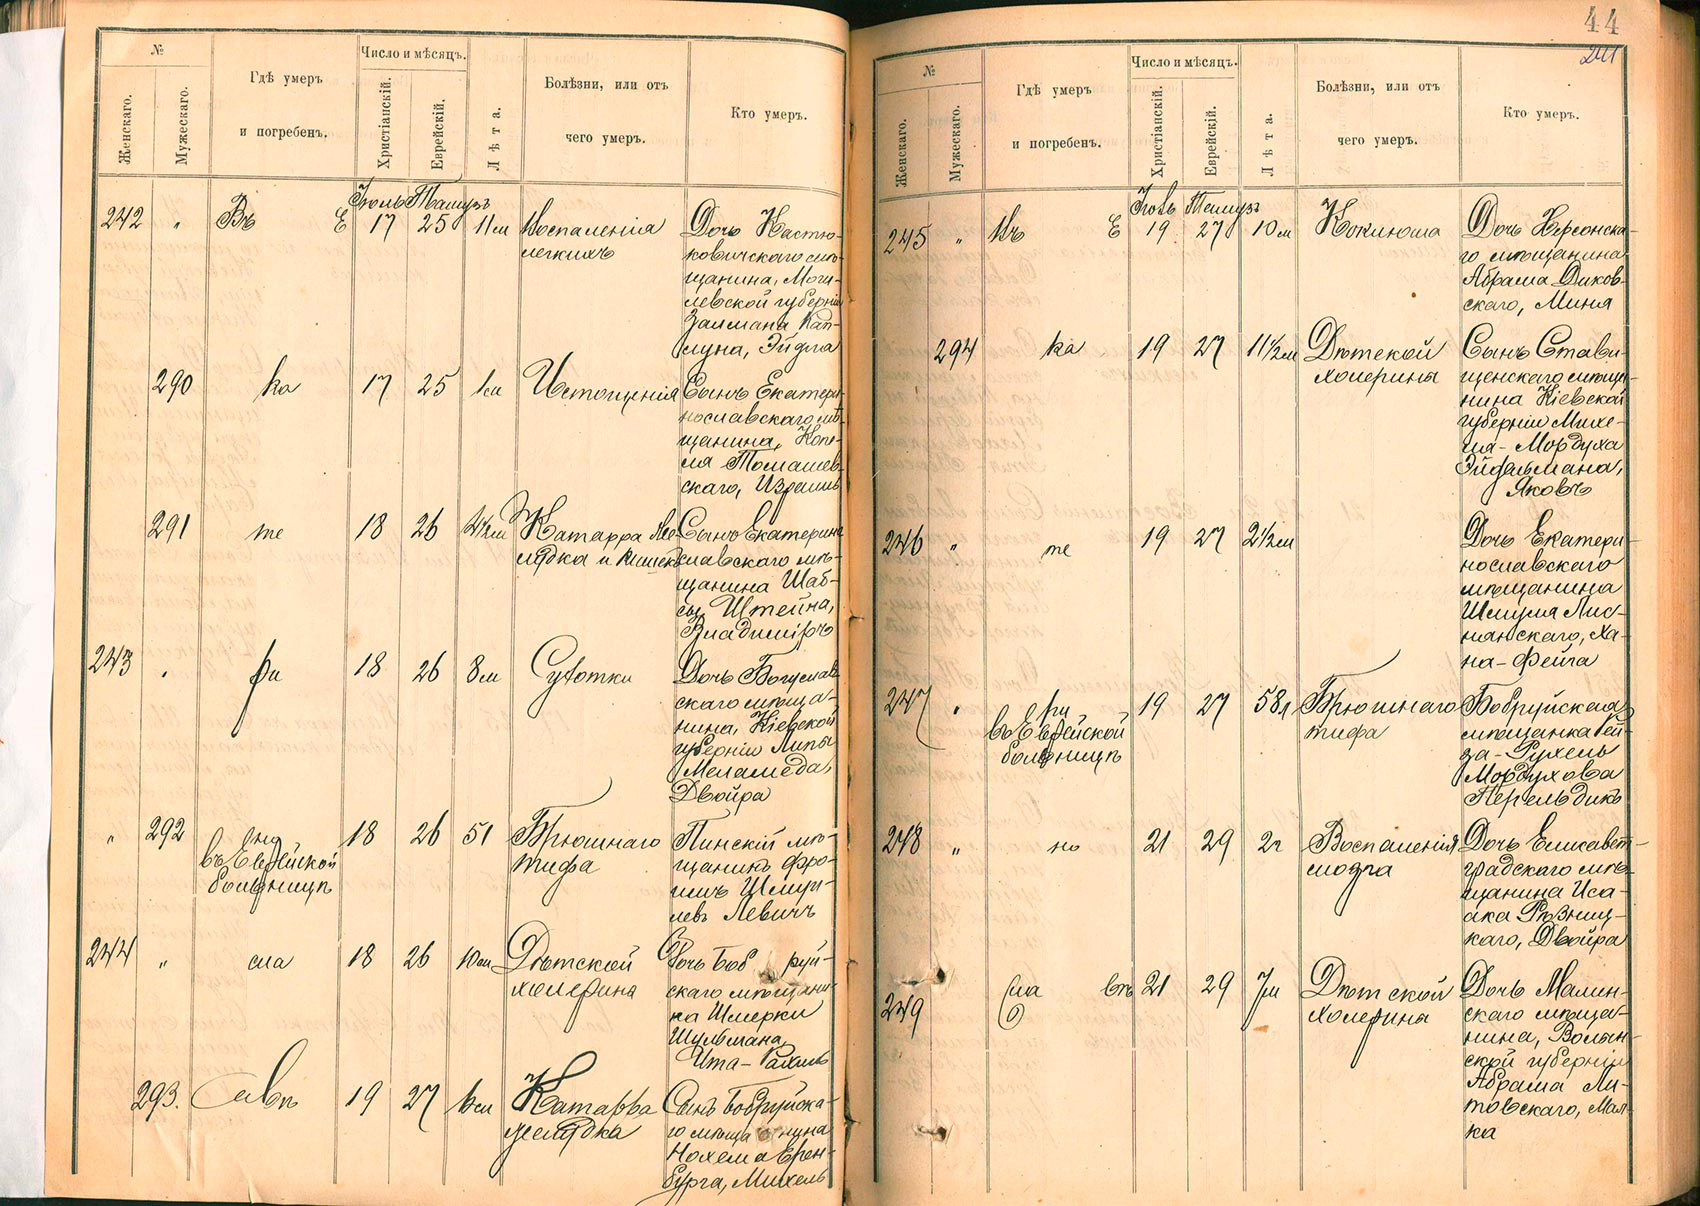 №
Женскаго.
Мужескаго.
Гдѣ умеръ
и погребенъ.
Число и мѣсяцъ.
Христіанскій.
Еврейскій.
Лѣта.
Болѣзни, или отъ
чего умеръ.
Кто умеръ.
Іюль Тамузъ
242 " Въ Е 17 25 11м Воспаленія
легкихъ
Дочь Костю-
ковичскаго мѣ-
щанина, Моги-
левской губерніи
Залмана Кап-
луна, Эйдла
290 ка 17 25 1м Истощенія
Сынъ Екатери-
нославскаго мѣ-
щанина, Копе-
ля Томашев-
скаго, Израиль
291 те 18 26 2½м Катарра же-
лудка и кишекъ
Сынъ Екатерино
славскаго мѣ-
щанина Шаб-
сы Штейна,
Владиміръ
243 " ри 18 26 8м Сухотки
Дочь Богуслав-
скаго мѣща-
нина, Кіевской
губерніи Липы
Меламеда,
Двойра
" 292 въ Еврейской
больницѣ
18 26 51 Брюшнаго
тифа
Пинскій мѣ-
щанинъ Фро-
имъ Шмуи-
левъ Левичъ
244 " сла 18 26 10м Дѣтской
холерина
Дочь Боб руй-
скаго мѣщани-
на Шмерки
Шульмана,
Ита-Рахиль
293. авѣ 19 27 6м Катарра
желудка
Сынъ Бобруйска-
го мѣщанина
Нохема Ерен-
бурга, Михель
44
241
№
Женскаго.
Мужескаго.
Гдѣ умеръ
и погребенъ.
Число и мѣсяцъ.
Христіанскій.
Еврейскій.
Лѣта.
Болѣзни, или отъ
чего умеръ.
Кто умеръ.
Іюль Тамузъ
245 " Въ Е 19 27 10м Коклюша
Дочь Херсонска-
го мѣщанина
Абрама Диков-
скаго, Миня
294 ка 19 27 11½м Дѣтской
холерины
Сынъ Стави-
щенскаго мѣща-
нина Кіевской
губерніи Михе-
ля-Мордуха
Эйдельмана,
Яковъ
246 " те 19 27 2½м
Дочь Екатери-
нославскаго
мѣщанина
Шмуля Лис-
нянскаго, Ха-
на-Фейга
247 " ри
въ Еврейской
больницѣ
19 27 58л Брюшнаго
тифа
Бобруйская
мѣщанка Гей-
за-Рухель
Мордухова
Перельдикъ
248 " но 21 29 2г Воспаленія
мозга
Дочь Елисавет-
градскаго мѣ-
щанина Иса-
ака Рѣзниц-
каго, Двойра
249 сла вѣ 21 29 7м Дѣтской
холерины
Дочь Малин-
скаго мѣща-
нина, Волын-
ской губерніи
Абрама Ли-
товскаго, Мал-
ка